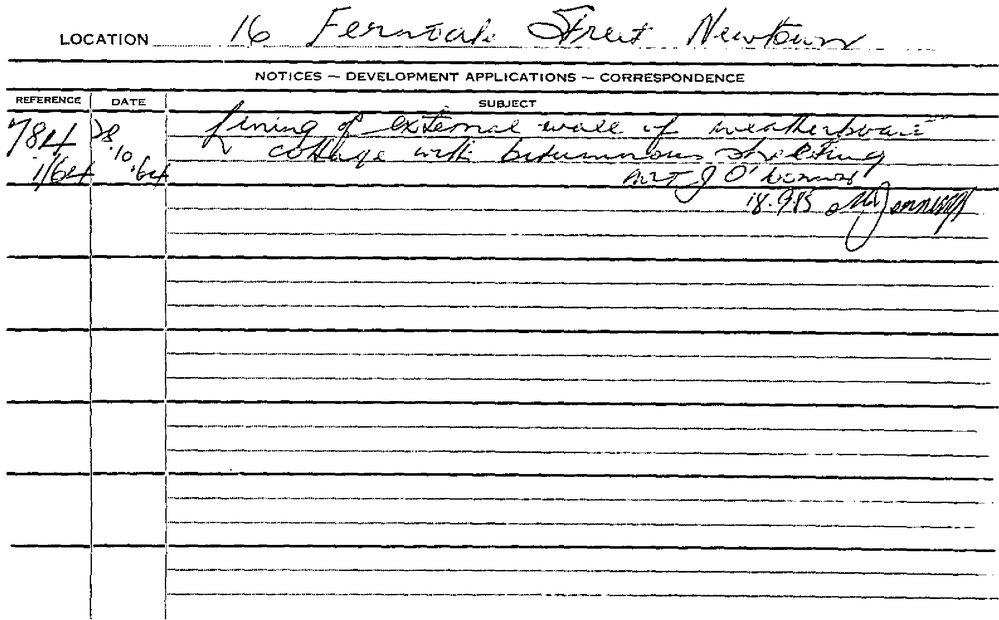 LOCATION 16 Ferndale Street Newtown
NOTICES — DEVELOPMENT APPLICATIONS — CORRESPONDENCE
REFERENCE DATE SUBJECT
784 28 Lining of external wall of weatherboard
1/64 .10.64 cottage with bituminous sheeting
J O'Connor
18.9.85